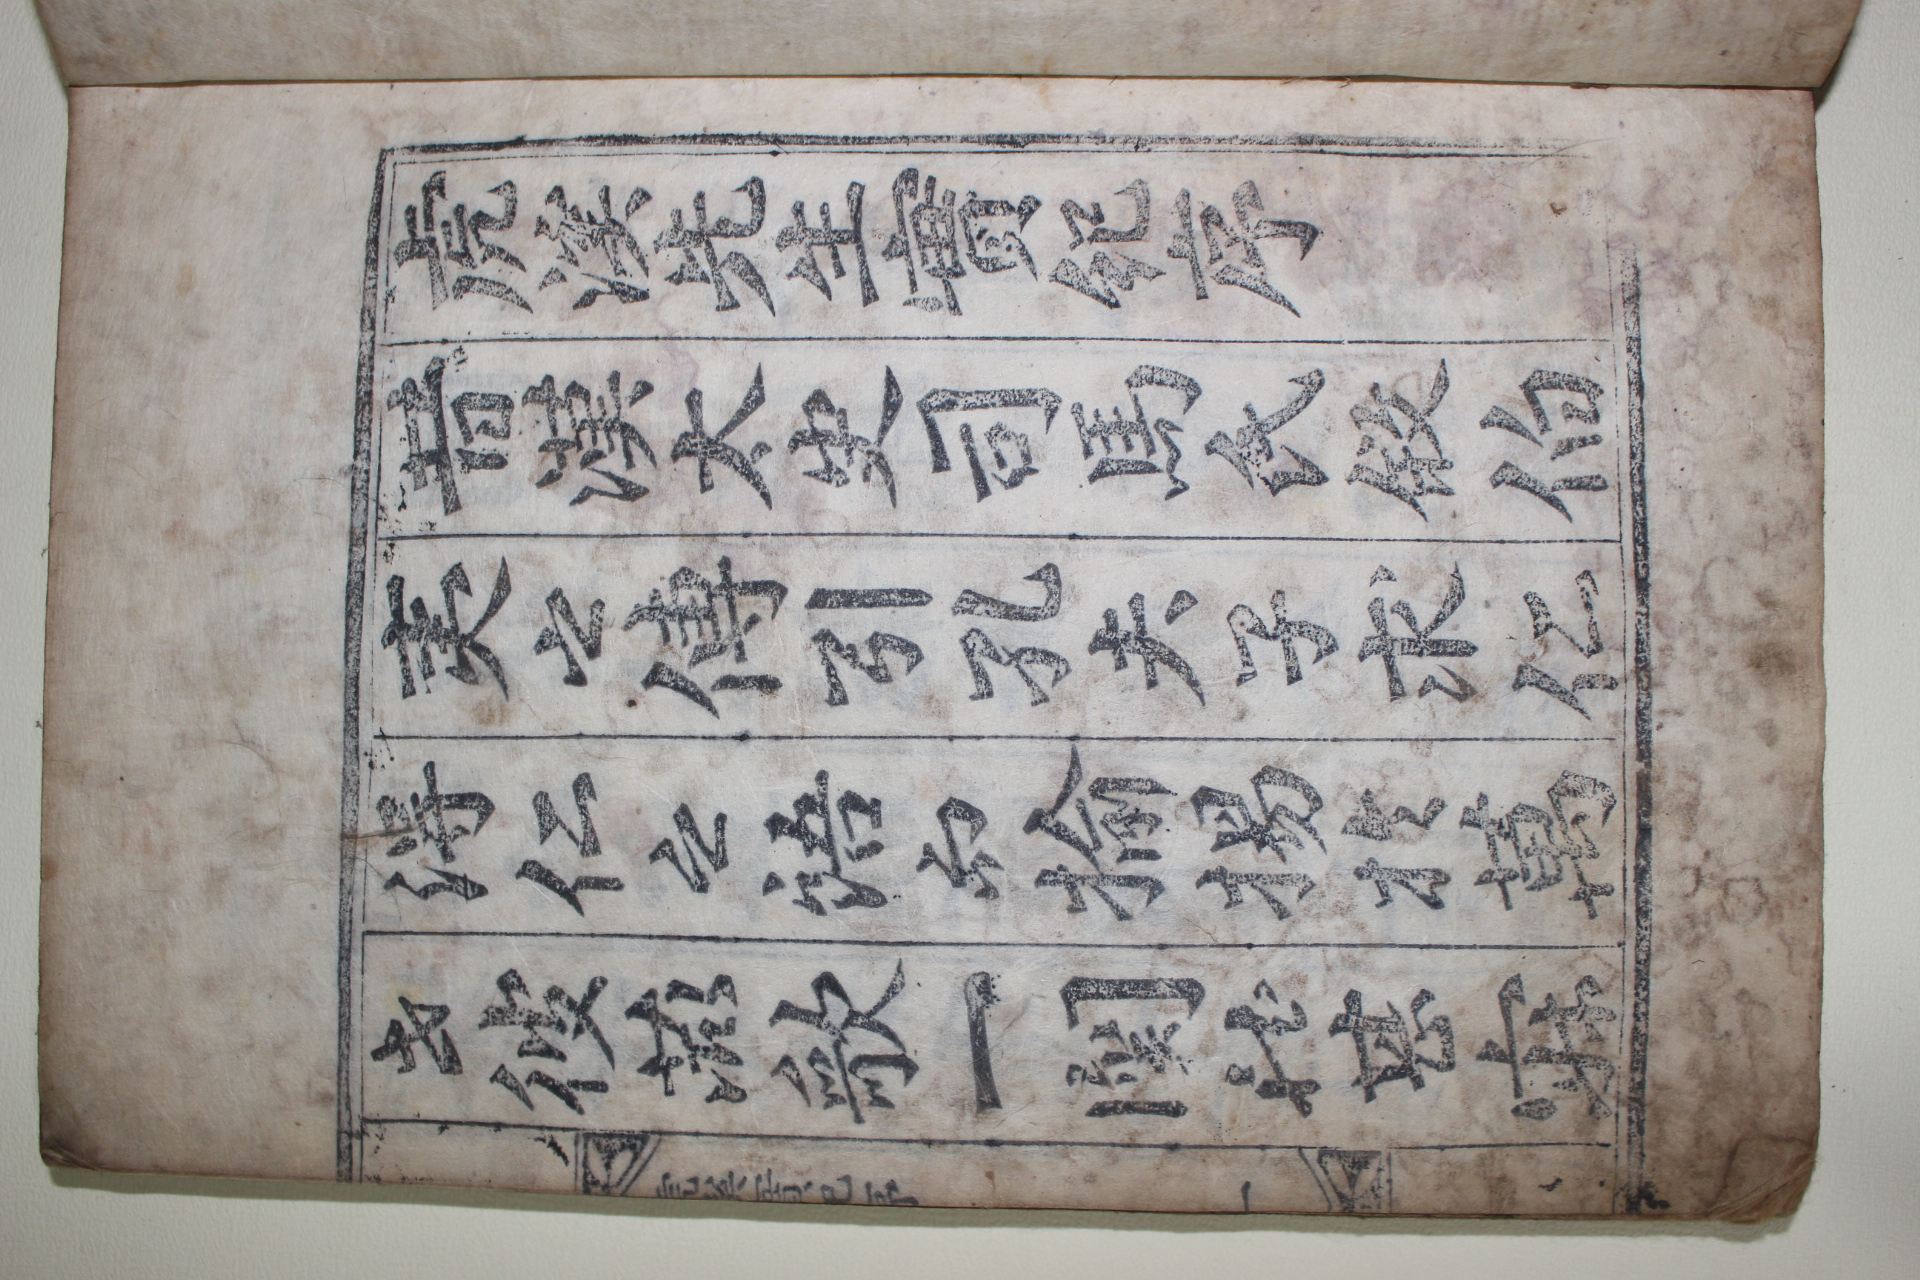 虎溪先生實紀序
昔漢太史司馬氏敘伯
夷之傳引孔夫子求仁
得仁之語而揄揚於萬
世彼燕歌一闋祗甚寂
虎溪實紀序
一